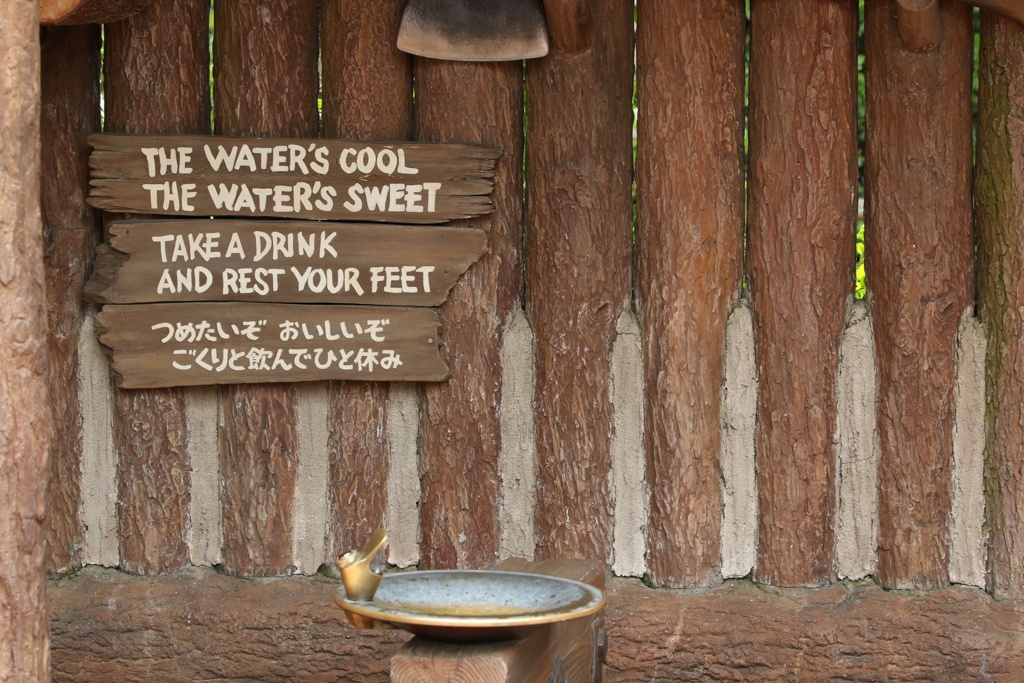 THE WATER'S COOL
THE WATER'S SWEET
TAKE A DRINK
AND REST YOUR FEET
つめたいぞ おいしいぞ
ごくりと飲んでひと休み